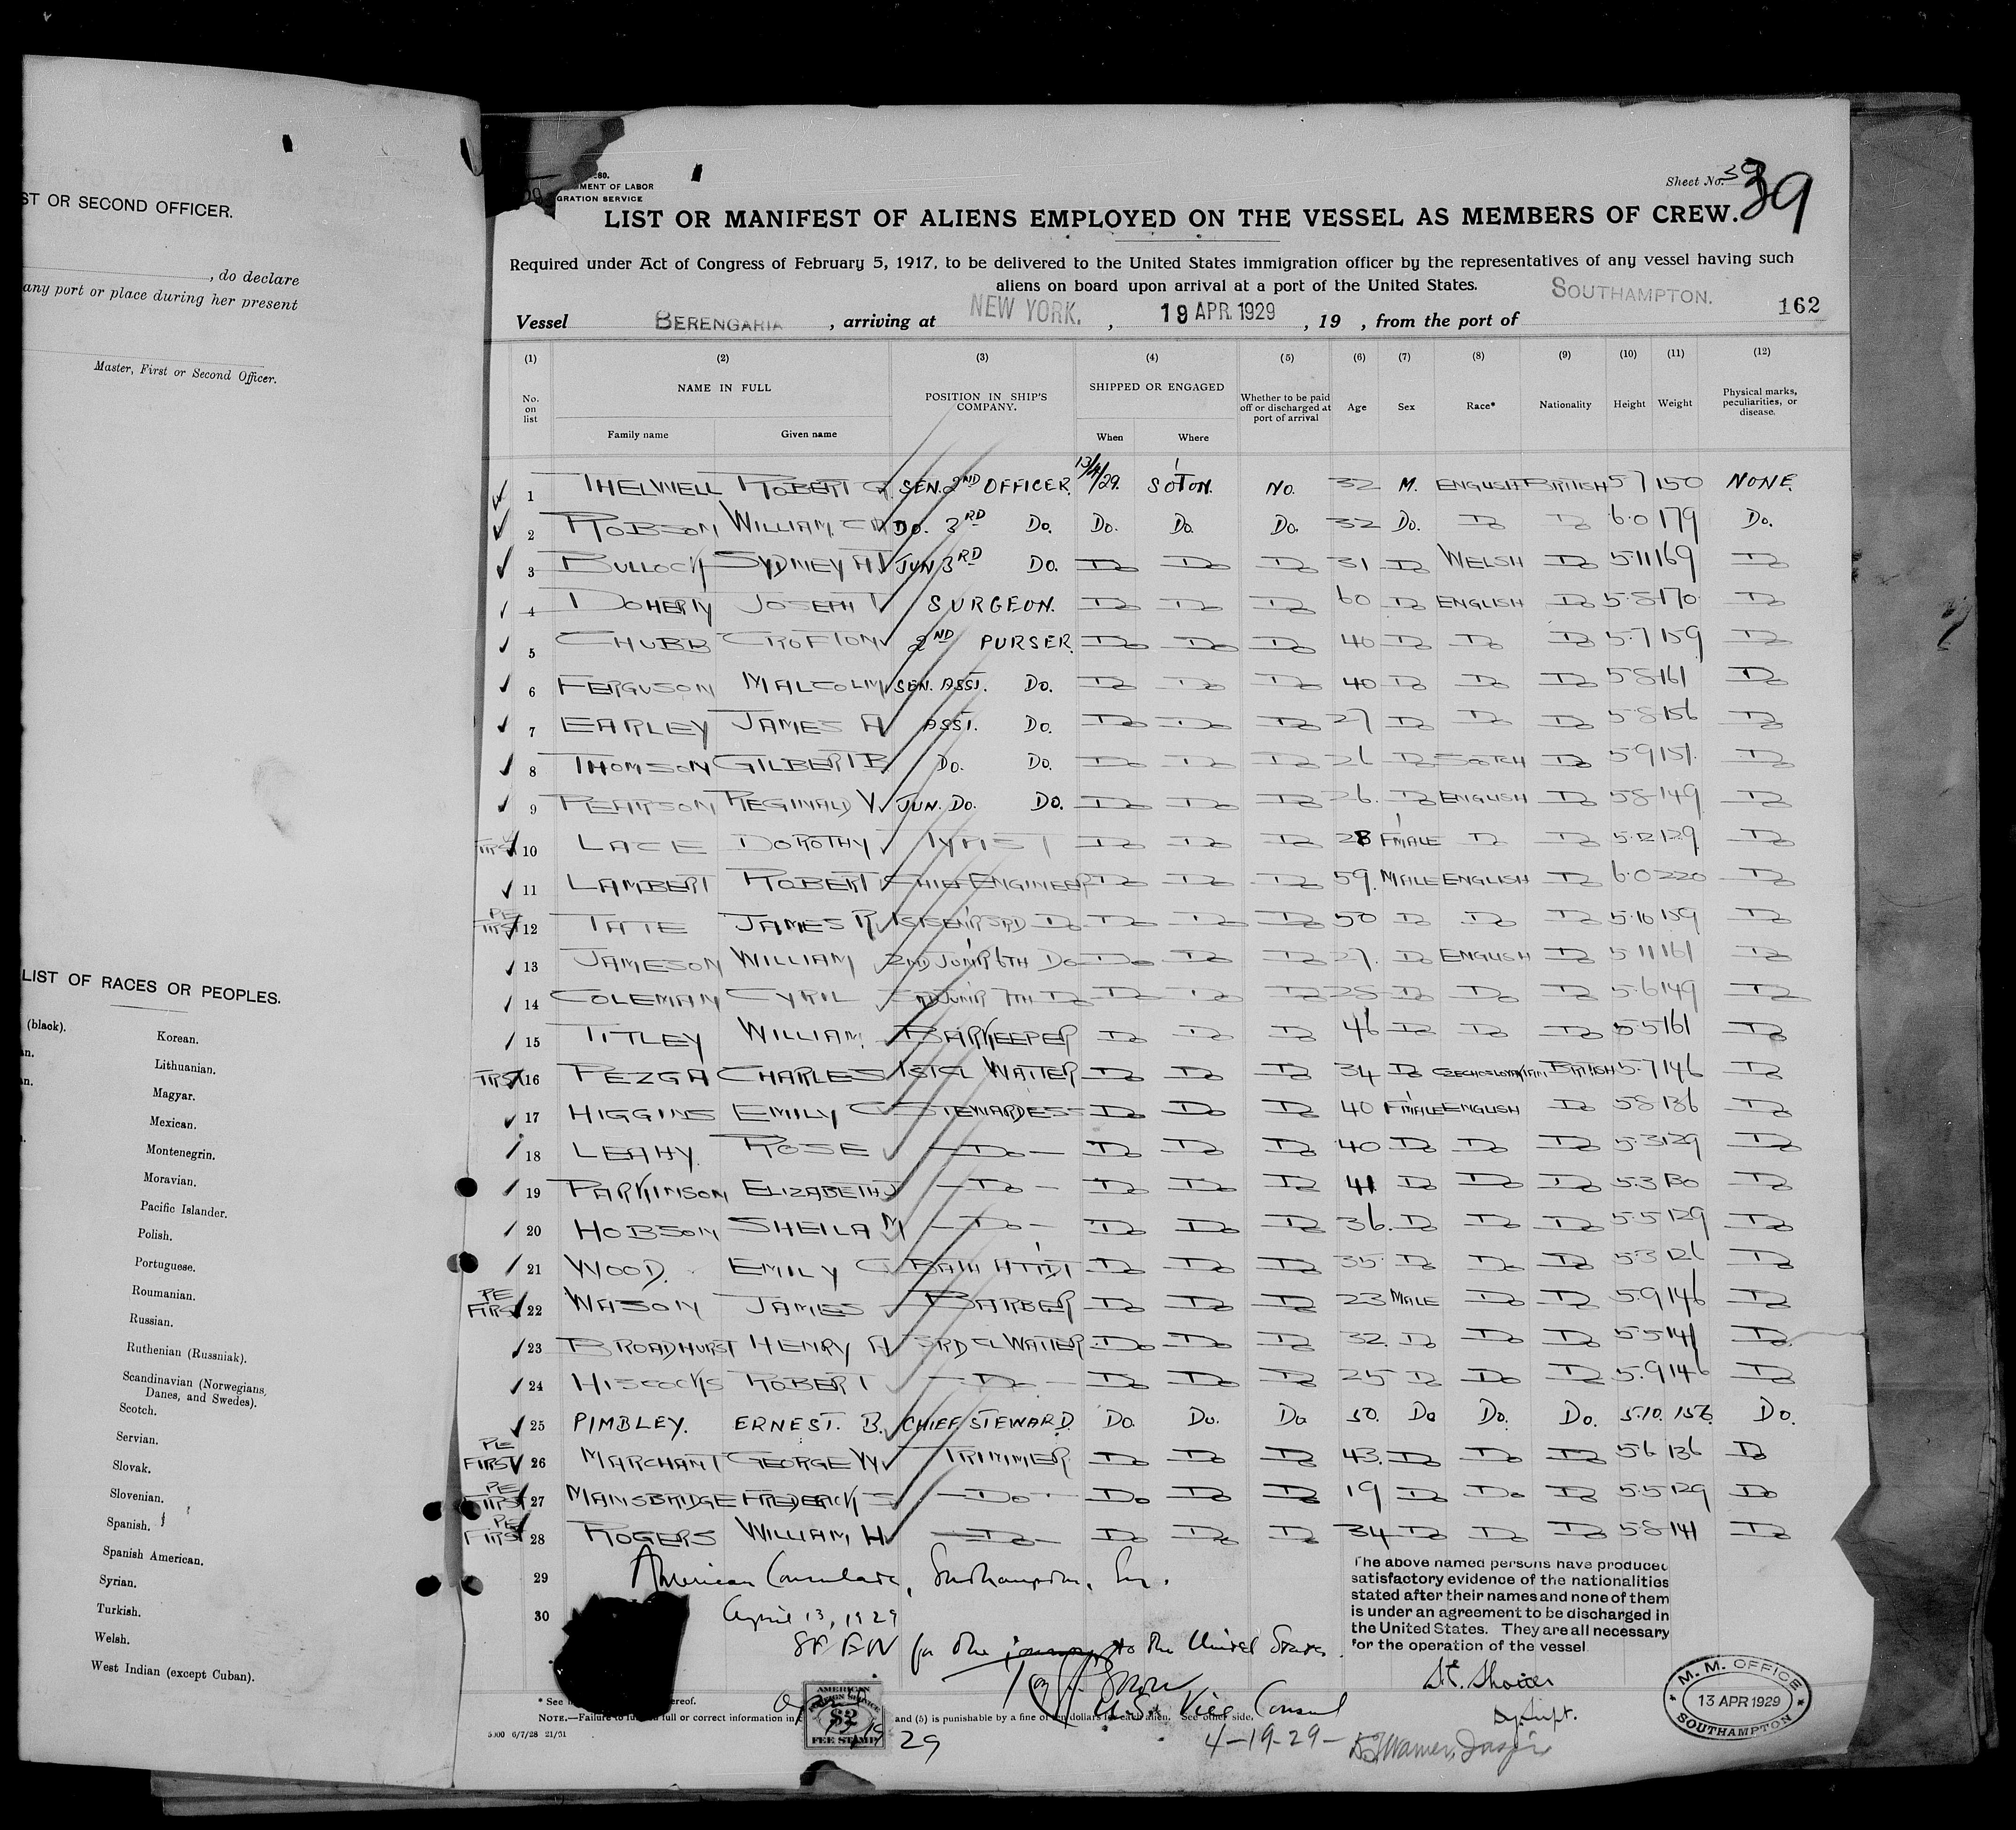 ST OR SECOND OFFICER.
, do declare
any port or place during her present
Master, First or Second Officer.
LIST OF RACES OR PEOPLES.
(black).
Korean.
Lithuanian.
Magyar.
Mexican.
Montenegrin.
Moravian.
Pacific Islander.
Polish.
Portuguese.
Roumanian.
Russian.
Ruthenian (Russniak).
Scandinavian (Norwegians,
Danes, and Swedes).
Scotch.
Servian.
Slovak.
Slovenian.
Spanish.
Spanish American.
Syrian.
Turkish.
Welsh.
West Indian (except Cuban).
MENT OF LABOR
GRATION SERVICE
Sheet No. 39
39
LIST OR MANIFEST OF ALIENS EMPLOYED ON THE VESSEL AS MEMBERS OF CREW.
Required under Act of Congress of February 5, 1917, to be delivered to the United States immigration officer by the representatives of any vessel having such
aliens on board upon arrival at a port of the United States.
Vessel BERENGARIA, arriving at NEW YORK., 19 APR. 1929, 19 , from the port of SOUTHAMPTON. 162
(1) (2) (3) (4) (5) (6) (7) (8) (9) (10) (11) (12)
No. on list NAME IN FULL Family name Given name POSITION IN SHIP'S COMPANY. SHIPPED OR ENGAGED When Where Whether to be paid off or discharged at port of arrival Age Sex Race* Nationality Height Weight Physical marks, peculiarities, or disease.
1 THELWELL ROBERT G. SEN. 2ND OFFICER. 13/4/29. SOTON. NO. 32 M. ENGLISH BRITISH 5 7 150 NONE.
2 ROBSON WILLIAM. C M DO. 3RD DO. DO. DO. DO. 32 DO. DO DO 6.0 179 DO.
3 BULLOCK SYDNEY H JUN 3RD DO. DO DO DO 31 DO WELSH DO 5.11 169 DO
4 DOHERTY JOSEPH T SURGEON. DO DO DO 60 DO ENGLISH DO 5.8 170 DO
5 CHUBB CROFTON 2ND PURSER. DO DO DO 40 DO DO DO 5.7 159 DO
6 FERGUSON MALCOLM SEN. ASST. DO. DO DO DO 40 DO DO DO 5 8 161 DO
7 EARLEY JAMES A ASST. DO. DO DO DO 27 DO DO DO 5.8 156 DO
8 THOMSON GILBERT B DO. DO. DO DO DO 26 DO SCOTCH DO 5 9 151. DO
9 PEARSON REGINALD V. JUN. DO. DO. DO DO DO 26. DO ENGLISH DO 5 8 149 DO
FIRST 10 LACE DOROTHY TYPIST DO DO DO 28 F'MALE DO DO 5. 129 DO
11 LAMBERT ROBERT CHIEF ENGINEER DO DO DO 59. MALE ENGLISH DO 6.0 220 DO
PE FIRST 12 TATE JAMES R 1ST SEN'R 3RD DO DO DO DO 50 DO DO DO 5.10 159 DO
13 JAMESON WILLIAM 2ND JUN'R 6TH DO DO DO DO 27. DO ENGLISH DO 5 11 161 DO
14 COLEMAN CYRIL JUN'R 7TH DO DO DO DO 25 DO DO DO 5.6 149 DO
15 TITLEY WILLIAM. BARKEEPER DO DO DO 46 DO DO DO 5.5 161 DO
FIRST 16 PEZGA CHARLES 1ST CL WAITER DO DO DO 34 DO CZECHOSLOVAKIAN BRITISH 5.7 146 DO
17 HIGGINS EMILY C STEWARDESS DO DO DO 40 F'MALE ENGLISH DO 5 8 136 DO
18 LEAHY. ROSE DO DO DO DO 40 DO DO DO 5.3 129 DO
19 PARKINSON ELIZABETH J DO DO DO DO 41 DO DO DO 5.3 130 DO
20 HOBSON SHEILA M DO DO DO DO 36. DO DO DO 5.5 129 DO
21 WOOD. EMILY G BATH ATT'DT DO DO DO 35. DO DO DO 5.3 126 DO
PE FIRST 22 WASON JAMES BARBER DO DO DO 23 MALE DO DO 5.9 146 DO
23 BROADHURST HENRY A 3RD CL WAITER DO DO DO 32. DO DO DO 5.5 141 DO
24 HISCOCKS ROBERT DO DO DO DO 25 DO DO DO 5.9 146 DO
25 PIMBLEY. ERNEST. B. CHIEF STEWARD. DO. DO. DO 50. DO DO. DO. 5.10. 156. DO.
PE FIRST 26 MARCHANT GEORGE W. TRIMMER DO DO DO 43. DO DO DO 5 6 136 DO
PE FIRST 27 MANSBRIDGE FREDERICK S DO DO DO DO 19 DO DO DO 5.5 129 DO
PE FIRST 28 ROGERS WILLIAM H DO DO DO DO 34 DO DO DO 5.8 141 DO
29 American Consulate, Southampton, Eng.
30 April 13, 1929
SEEN for the journey to the United States.
U.S. Vice Consul
The above named persons have produced
satisfactory evidence of the nationalities
stated after their names and none of them
is under an agreement to be discharged in
the United States. They are all necessary
for the operation of the vessel.
Supt.
M. M. OFFICE
13 APR 1929
SOUTHAMPTON
* See ereof.
NOTE.—Failure to full or correct information in and (5) is punishable by a fine of ten dollars for each alien. See other side.
AMERICAN
FOREIGN SERVICE
$2
FEE STAMP
29
4-19-29-
5500 6/7/28 21/51